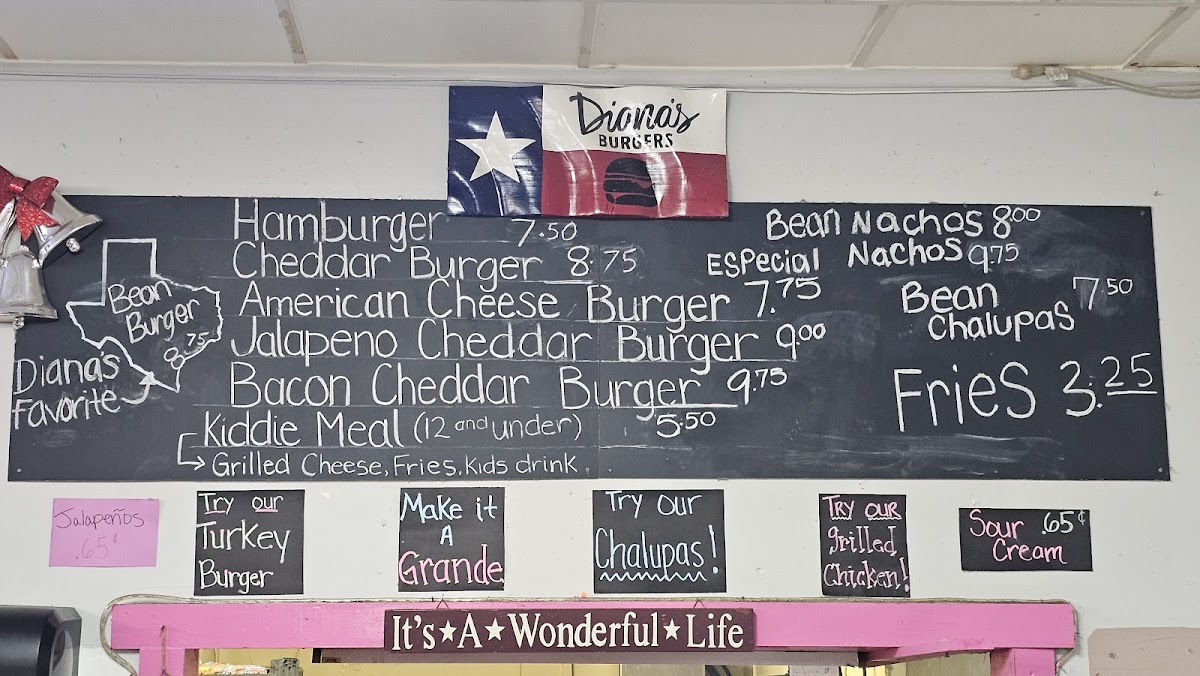 Diana's
BURGERS
Hamburger 7.50
Cheddar Burger 8.75
American Cheese Burger 7.75
Jalapeno Cheddar Burger 9.00
Bacon Cheddar Burger 9.75
Kiddie Meal (12 and under) 5.50
Grilled Cheese, Fries, Kids drink
Bean
Burger
8.75
Diana's
Favorite
Bean Nachos 8.00
Especial Nachos 9.75
Bean 7.50
Chalupas
Fries 3.25
Jalapeños
.65¢
Try our
Turkey
Burger
Make it
A
Grande
Try our
Chalupas!
Try our
grilled
Chicken!
Sour .65¢
Cream
It's A Wonderful Life